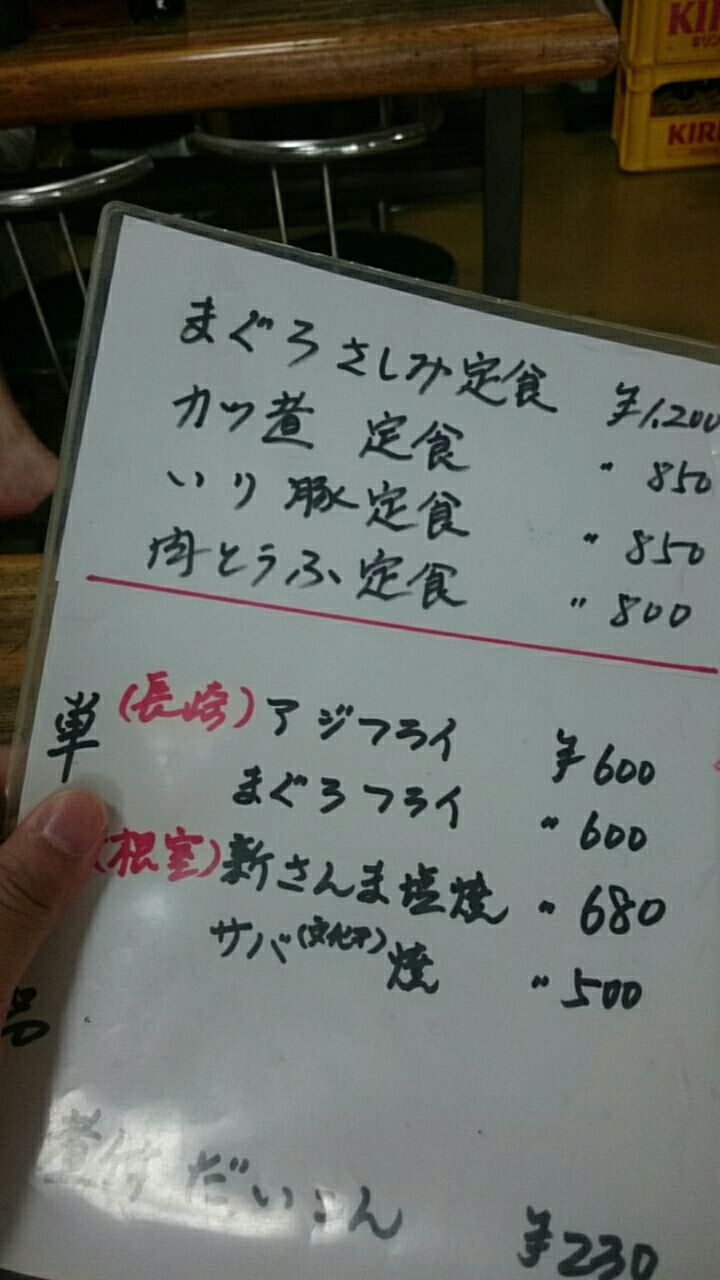 KIRIN
キリン
KIRIN
まぐろ さしみ定食 ¥1,200
カツ煮 定食 〃 850
いり豚定食 〃 850
肉とうふ定食 〃 800
単品
(長崎) アジフライ ¥600
まぐろフライ 〃 600
(根室) 新さんま塩焼 〃 680
サバ(文化干)焼 〃 500
煮付 だいこん ¥230